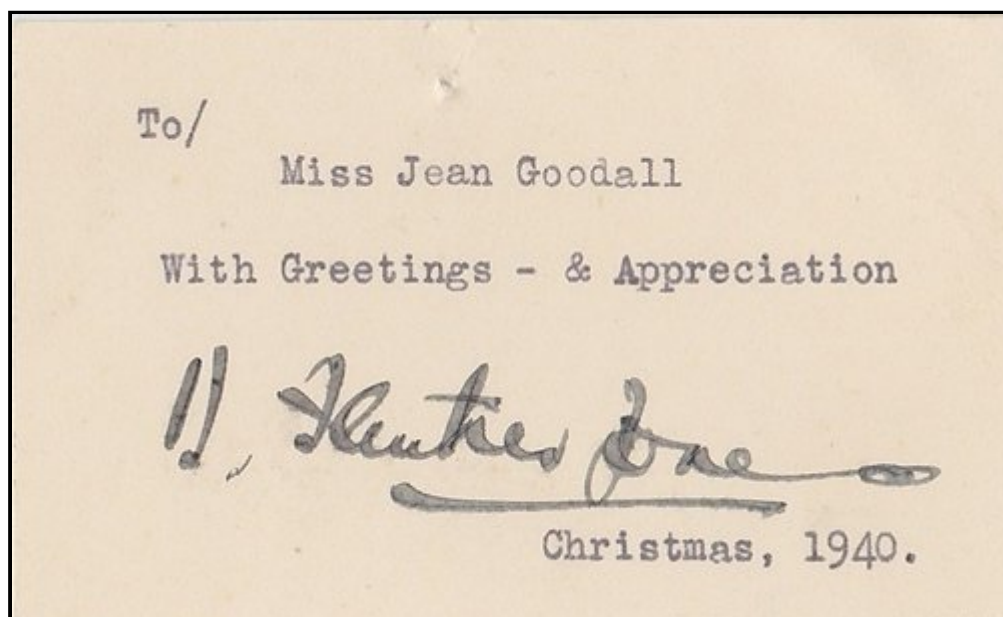 To/
Miss Jean Goodall
With Greetings - & Appreciation
H. Jones
Christmas, 1940.